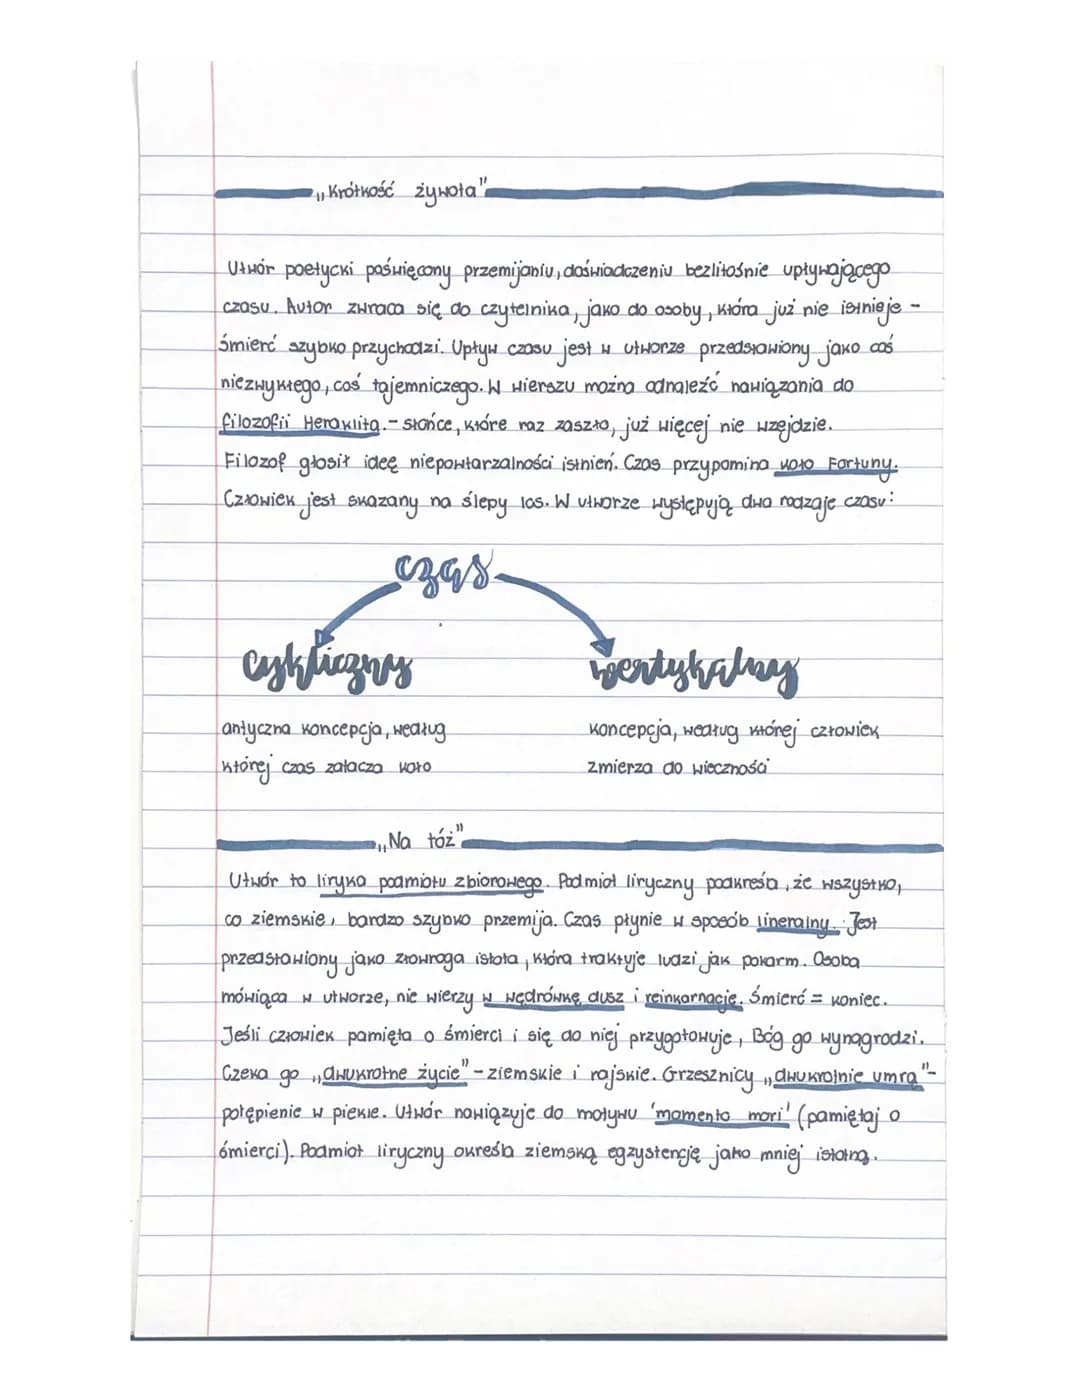 „Krótkość żywota"
Utwór poetycki poświęcony przemijaniu, doświadczeniu bezlitośnie upływającego
czasu. Autor zwraca się do czytelnika, jako do osoby, która już nie istnieje -
śmierć szybko przychodzi. Upływ czasu jest w utworze przedstawiony jako coś
niezwykłego, coś tajemniczego. W wierszu można odnaleźć nawiązania do
filozofii Heraklita. - słońce, które raz zaszło, już więcej nie wzejdzie.
Filozof głosił ideę niepowtarzalności istnień. Czas przypomina koło Fortuny.
Człowiek jest skazany na ślepy los. W utworze występują dwa rodzaje czasu:
czas
cykliczny wertykalny
antyczna koncepcja, według koncepcja, według której człowiek
której czas zatacza koło zmierza do wieczności
„Na tóż"
Utwór to liryka podmiotu zbiorowego. Podmiot liryczny podkreśla, że wszystko,
co ziemskie, bardzo szybko przemija. Czas płynie w sposób lineralny. Jest
przedstawiony jako złowroga istota, która traktuje ludzi jak pokarm. Osoba
mówiąca w utworze, nie wierzy w wędrówkę dusz i reinkarnację. Śmierć = koniec.
Jeśli człowiek pamięta o śmierci i się do niej przygotowuje, Bóg go wynagrodzi.
Czeka go „dwukrotne życie" - ziemskie i rajskie. Grzesznicy „dwukrotnie umrą" -
potępienie w piekle. Utwór nawiązuje do motywu 'momento mori' (pamiętaj o
śmierci). Podmiot liryczny określa ziemską egzystencję jako mniej istotną.